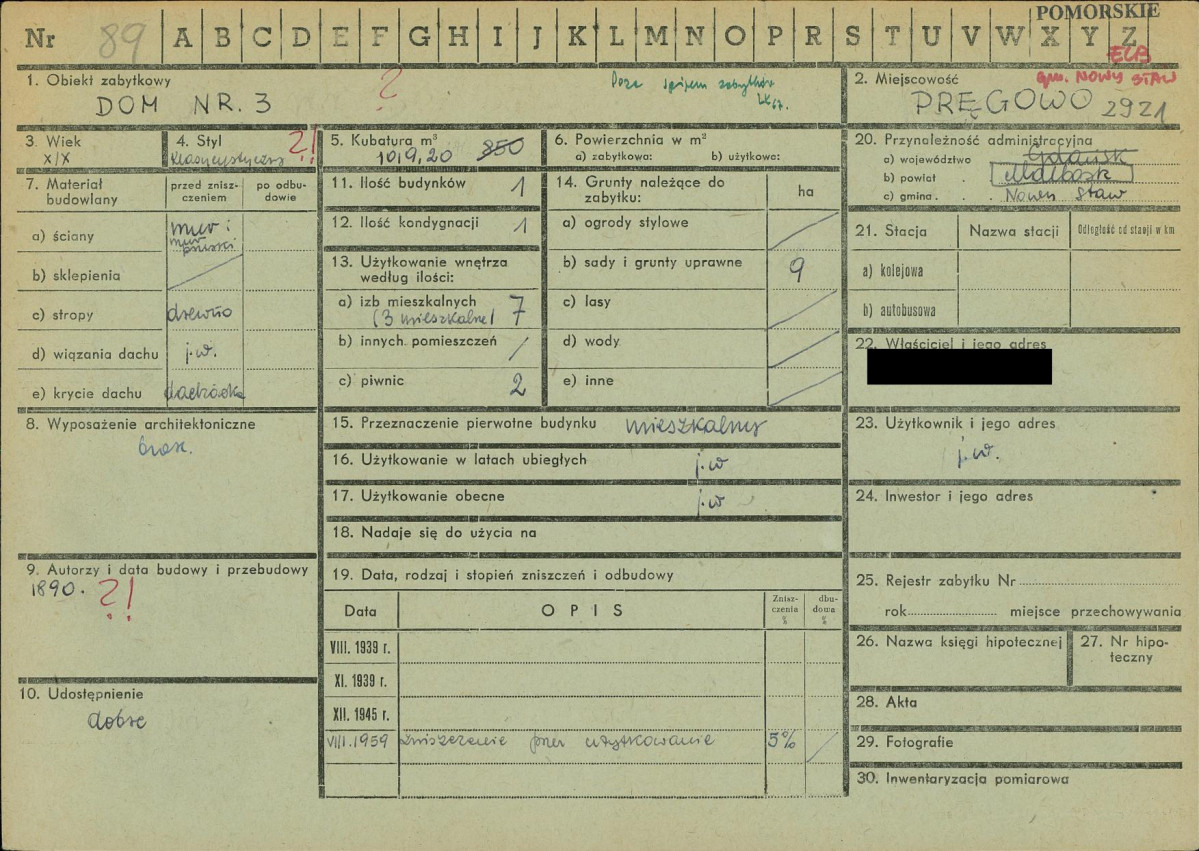 POMORSKIE
Nr 89 A B C D E F G H I J K L M N O P R S T U V W X Y Z
ELB
gm. NOWY STAW
1. Obiekt zabytkowy
DOM NR. 3
?
Poza spisem zabytków
2. Miejscowość
PRĘGOWO 2921
3. Wiek
X/X
4. Styl
klasycystyczny
?!
5. Kubatura m³
1019,20 850
6. Powierzchnia w m²
a) zabytkowa: b) użytkowa:
7. Materiał budowlany
przed zniszczeniem
po odbudowie
a) ściany
mur i
mur pruski
b) sklepienia
c) stropy drewno
d) wiązania dachu j.w.
e) krycie dachu dachówka
8. Wyposażenie architektoniczne
brak.
9. Autorzy i data budowy i przebudowy
1890. ?!
10. Udostępnienie
dobre
11. Ilość budynków 1
12. Ilość kondygnacji 1
13. Użytkowanie wnętrza
według ilości:
a) izb mieszkalnych 7
(3 mieszkalne)
b) innych pomieszczeń /
c) piwnic 2
14. Grunty należące do
zabytku:
ha
a) ogrody stylowe
b) sady i grunty uprawne 9
c) lasy
d) wody
e) inne
15. Przeznaczenie pierwotne budynku mieszkalny
16. Użytkowanie w latach ubiegłych j.w
17. Użytkowanie obecne j.w
18. Nadaje się do użycia na
19. Data, rodzaj i stopień zniszczeń i odbudowy
Data
OPIS
Zniszczenia %
dbudowa %
VIII. 1939 r.
XI. 1939 r.
XII. 1945 r.
VIII.1959 zniszczenie przez użytkowanie 5%
20. Przynależność administracyjna
a) województwo Gdańsk
b) powiat Malbork
c) gmina Nowy Staw
21. Stacja
Nazwa stacji
Odległość od stacji w km
a) kolejowa
b) autobusowa
22. Właściciel i jego adres
23. Użytkownik i jego adres
j.w.
24. Inwestor i jego adres
25. Rejestr zabytku Nr
rok miejsce przechowywania
26. Nazwa księgi hipotecznej
27. Nr hipoteczny
28. Akta
29. Fotografie
30. Inwentaryzacja pomiarowa